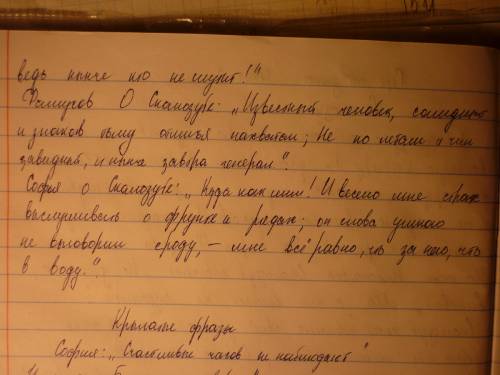 ведь нынче кто не шутит!"
Фамусов О Скалозубе: „Известный человек, солидный
и знаков тьму отличья нахватал; Не по летам и чин
завидный, и нынче завтра генерал".
София о Скалозубе: „Куда как мил! И весело мне страх
выслушивать о фрунте и рядах; он слова умного
не выговорил сроду, – мне всё равно, что за него, что
в воду."
Крылатые фразы
София: „Счастливые часов не наблюдают"